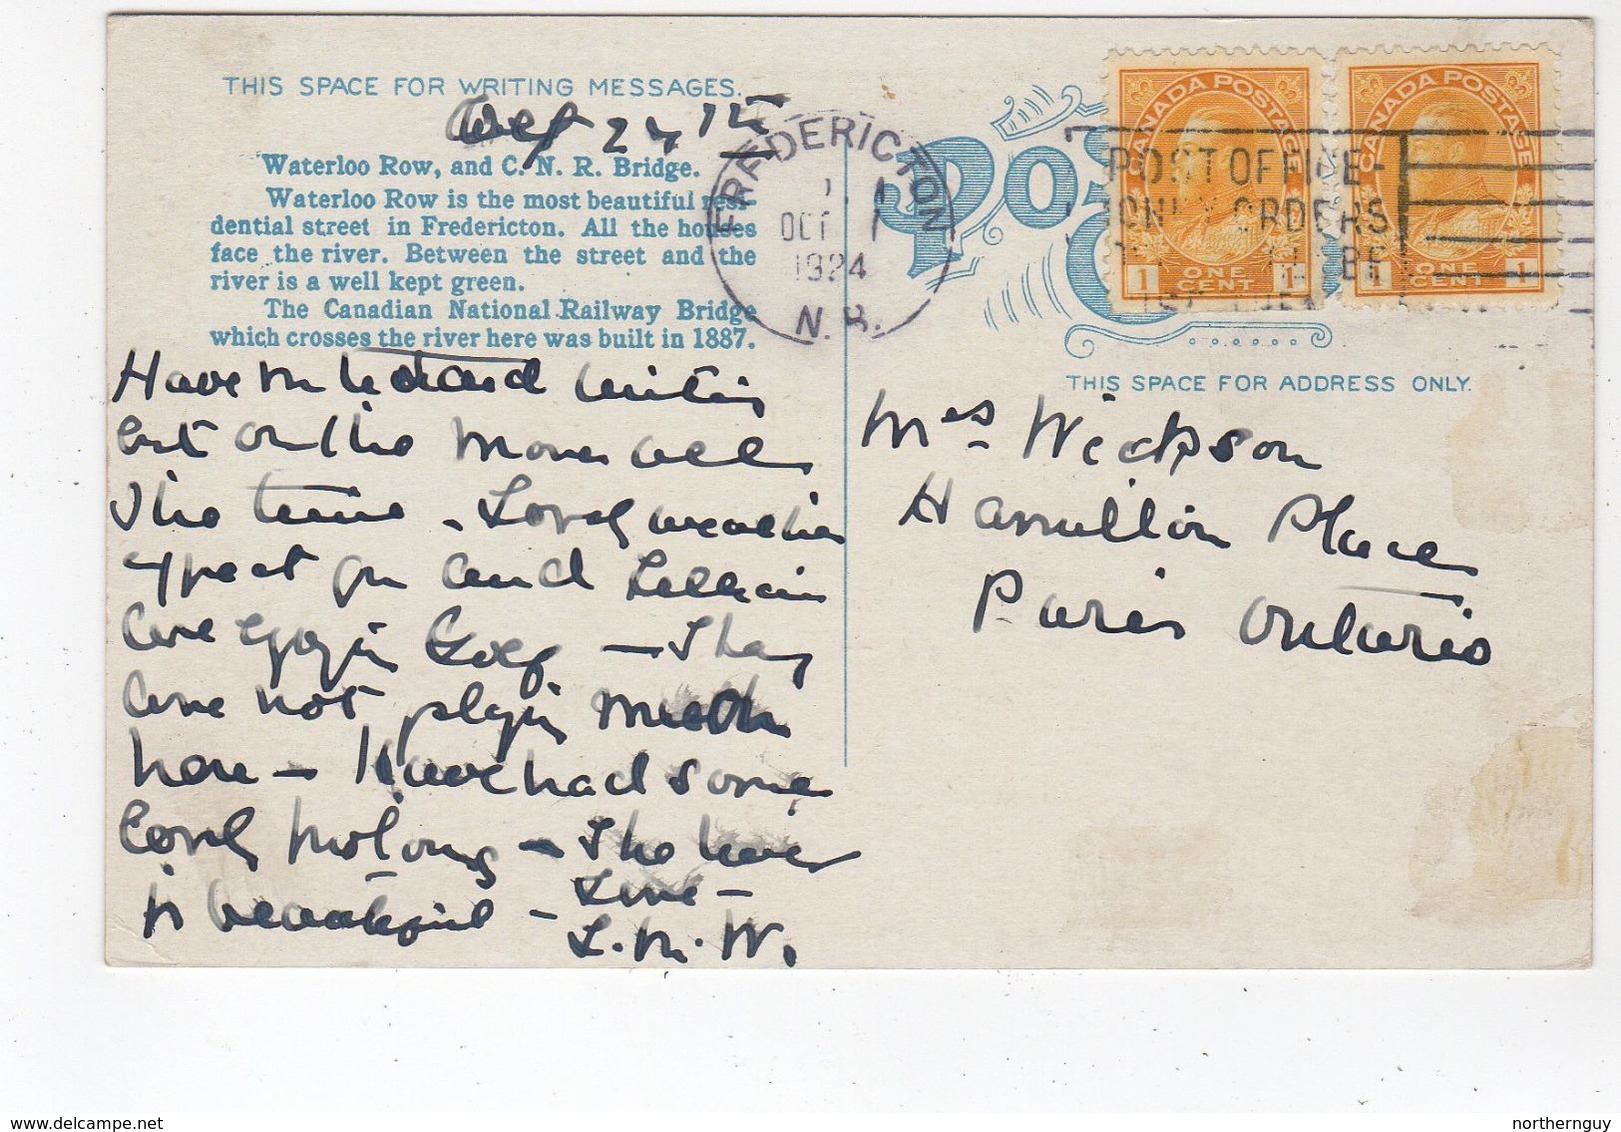 THIS SPACE FOR WRITING MESSAGES.
24th
Waterloo Row, and C. N. R. Bridge.
Waterloo Row is the most beautiful resi-
dential street in Fredericton. All the houses
face the river. Between the street and the
river is a well kept green.
The Canadian National Railway Bridge
which crosses the river here was built in 1887.
Have
but on the move all
the time - Lovely weather
expect and Lillian
are Golf - They
are not much
here - Have had some
Lovely motoring - The river
is beautiful - Love -
L. M. W.
FREDERICTON
OCT 1
1924
N. B.
POST OFFICE
MONEY ORDERS
CANADA POSTAGE
1 ONE CENT 1
CANADA POSTAGE
1 ONE CENT 1
THIS SPACE FOR ADDRESS ONLY.
Mrs Wickson
Hamilton Place
Paris Ontario
northernguy